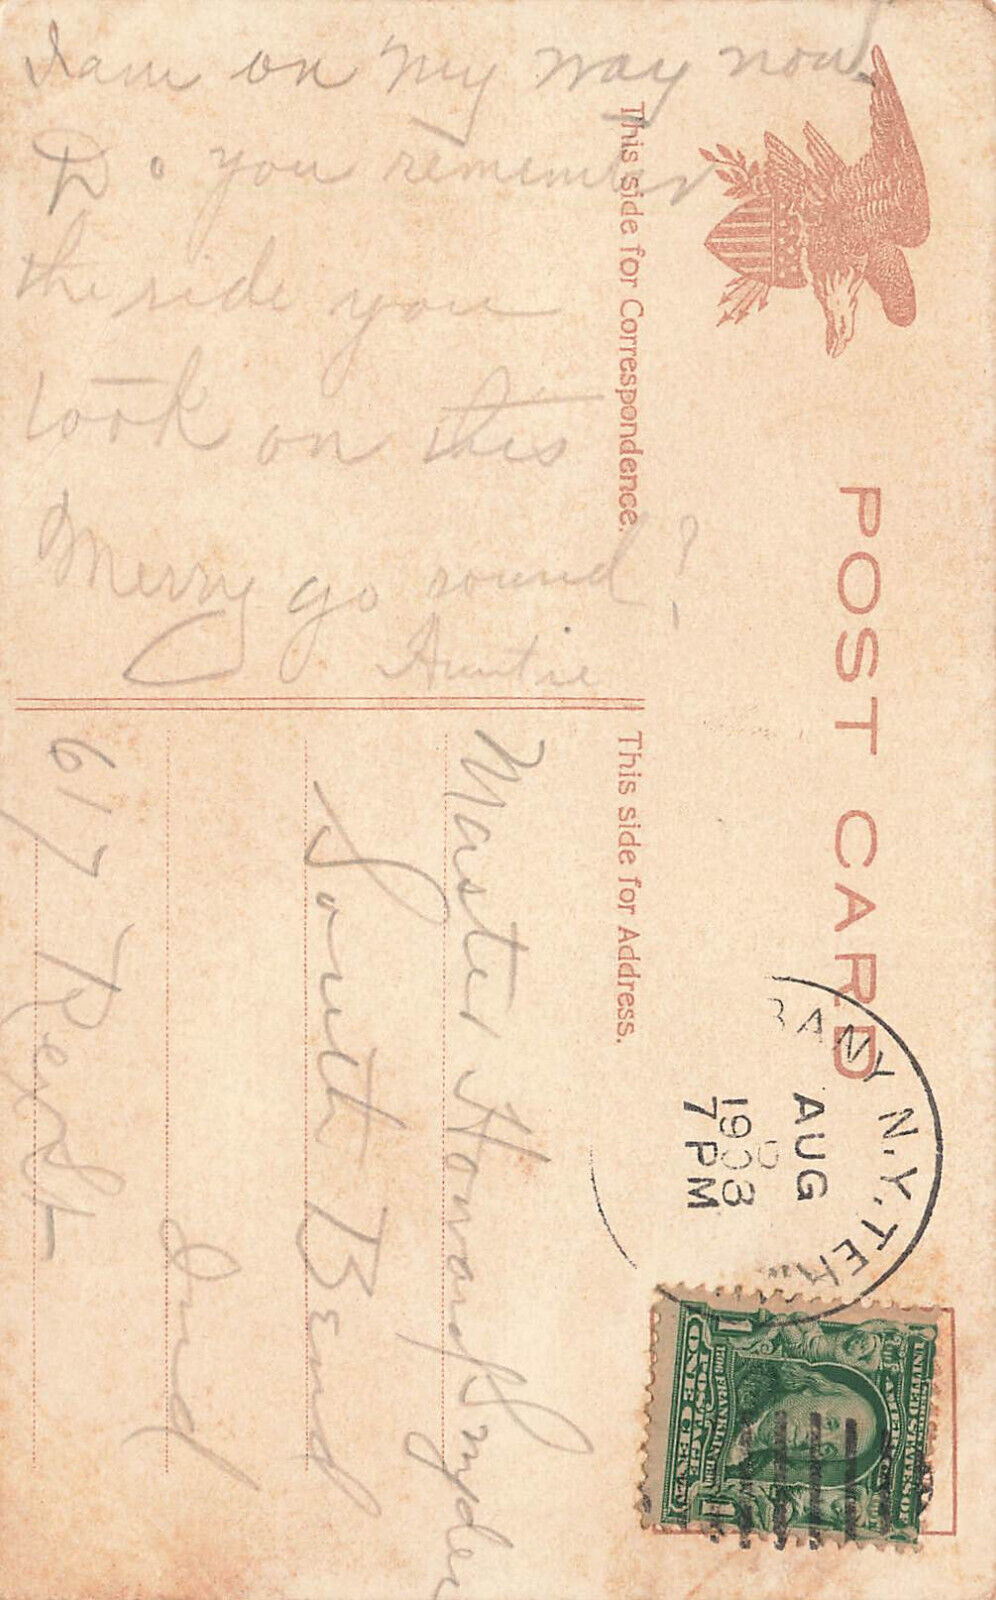 I am on my way now.
Do you remember
the ride you
took on this
Merry go round?
Auntie
This side for Correspondence.
POST CARD
This side for Address.
Master Howard Snyder
South Bend
Ind
617 Rex St
BANY N.Y. TER
AUG
1908
7 PM
UNITED STATES OF
AMERICA
FRANKLIN
POSTAGE
ONE CENT
1 1